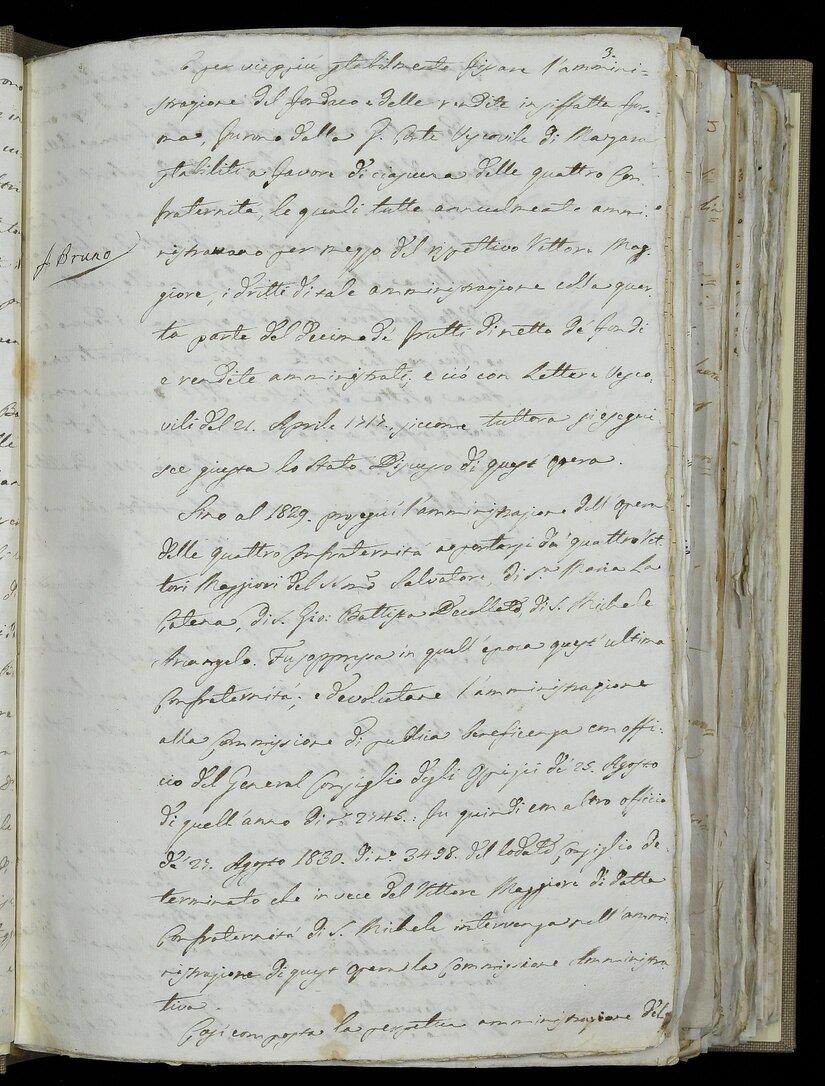 3.
E per vieppiù stabilmente fissare l'ammini-
strazione del fondaco e delle rendite in siffatta for-
ma, furono dalla G. Corte Vescovile di Mazzara
stabiliti a favore di ciascuna delle quattro Con
fraternita, le quali tutte annualmente ammi-
nistravano per mezzo del rispettivo Rettore Mag.
J. Bruno
giore, i dritti di tale amministrazione colla quar-
ta parte del decimo de' frutti di netto de' fondi
e rendite amministrati; e ciò con Lettere Vesco-
vili del 21. Aprile 1717., siccome tuttora si esegui-
sce giusta lo stato Discusso di quest'opera.
Sino al 1829. proseguì l'amministrazione dell'opera
delle quattro Confraternità a portarsi da' quattro Ret-
tori Maggiori del SSmo Salvatore, di Sa Maria La
Catena, di S. Gio: Battista Decollato, di S. Michele
Arcangelo. Fu soppressa in quell'epoca quest'ultima
Confraternita; e devolutane l'amministrazione
alla Commissione di publica beneficenza con offi-
cio del General Consiglio degli Ospizii de' 25. Agosto
di quell'anno di n.º 2745.: fu quindi con altro officio
de' 27. Agosto 1830. di n.º 3498. del lodato Consiglio de-
terminato che in vece del Rettore Maggiore di detta
Confraternità di S. Michele intervenga nell'ammi
nistrazione di quest'opera la Commissione Amministra-
tiva.
Così composta la perpetua amministrazione del